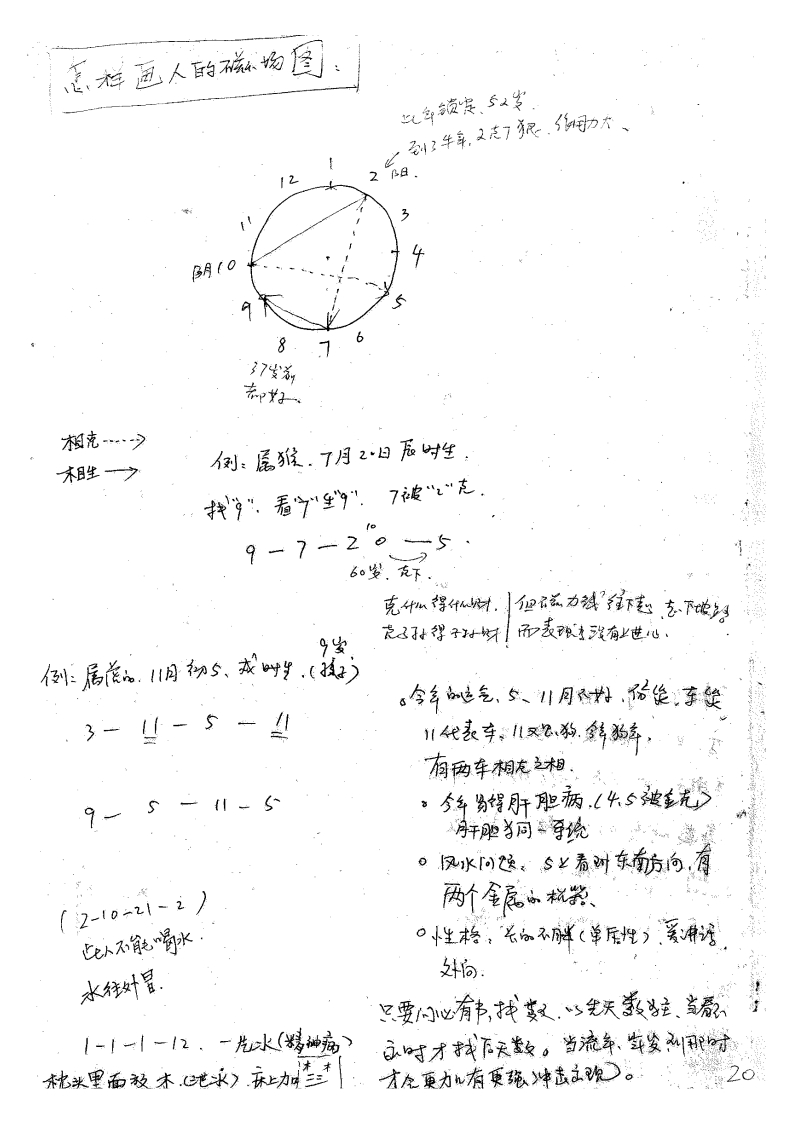 怎样画人的磁场图:
此年锁定、52岁
到了牛年,2克7狠、作用力大、
1
12
2 阳
11
3
阴10
4
9
5
8
7
6
37岁前
都好、
相克┄┄>
相生→
例:属猴、7月20日辰时生
找"9"、看"7"生"9"、7被"2"克.
9-7-2 10 -5.
60岁、克下.
克什么得什么财.
但磁力线往下走、走下坡
而表现了没有上进心.
例:属虎的、11月初5、戌时生.(9岁孩子)
3-11-5-11
9-5-11-5
(2-10-21-2)
此人不能喝水.
水往外冒.
1-1-1-12.一片水(精神病)
枕头里面放木.(泄水).床上加 木 三三 木
。今年的运气、5、11月不好、
11代表车、11又为狗.今年狗年.
有两车相克之相.
。今年易得肝胆病.(4.5被金克)
肝胆为同一系统
。风水问题、5又看到东南方向,有
两个金属的机器、
。性格:长的不胖(单居性)、爱讲话
外向.
只要问必有书,找数、以先天数为主、当看不
立时才找后天数。当流年、年岁到那时
才会更加有更强冲击表现)。
20